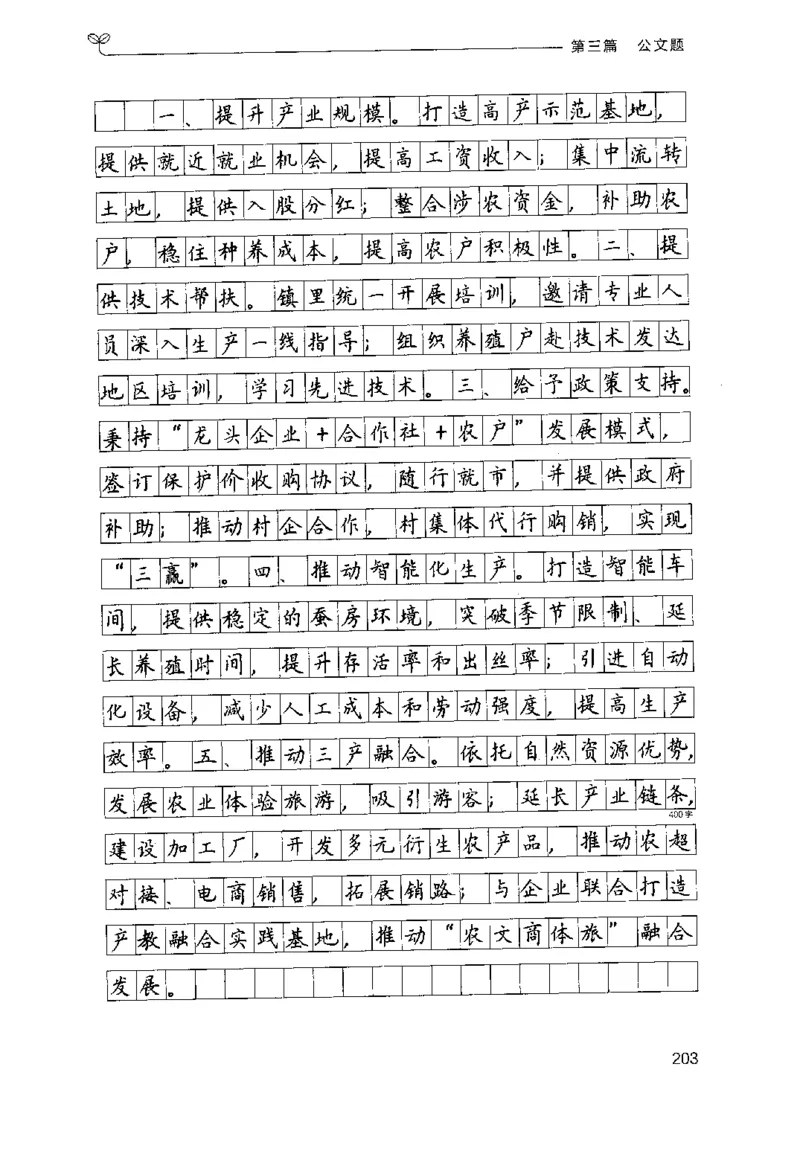 第三篇 公文题
一、提升产业规模。打造高产示范基地，
提供就近就业机会，提高工资收入；集中流转
土地，提供入股分红；整合涉农资金，补助农
户，稳住种养成本，提高农户积极性。二、提
供技术帮扶。镇里统一开展培训，邀请专业人
员深入生产一线指导；组织养殖户赴技术发达
地区培训，学习先进技术。三、给予政策支持。
秉持“龙头企业+合作社+农户”发展模式，
签订保护价收购协议，随行就市，并提供政府
补助；推动村企合作，村集体代行购销，实现
“三赢”。四、推动智能化生产。打造智能车
间，提供稳定的蚕房环境，突破季节限制、延
长养殖时间，提升存活率和出丝率；引进自动
化设备，减少人工成本和劳动强度，提高生产
效率。五、推动三产融合。依托自然资源优势，
发展农业体验旅游，吸引游客；延长产业链条，
400字
建设加工厂，开发多元衍生农产品，推动农超
对接、电商销售，拓展销路；与企业联合打造
产教融合实践基地，推动“农文商体旅”融合
发展。
203